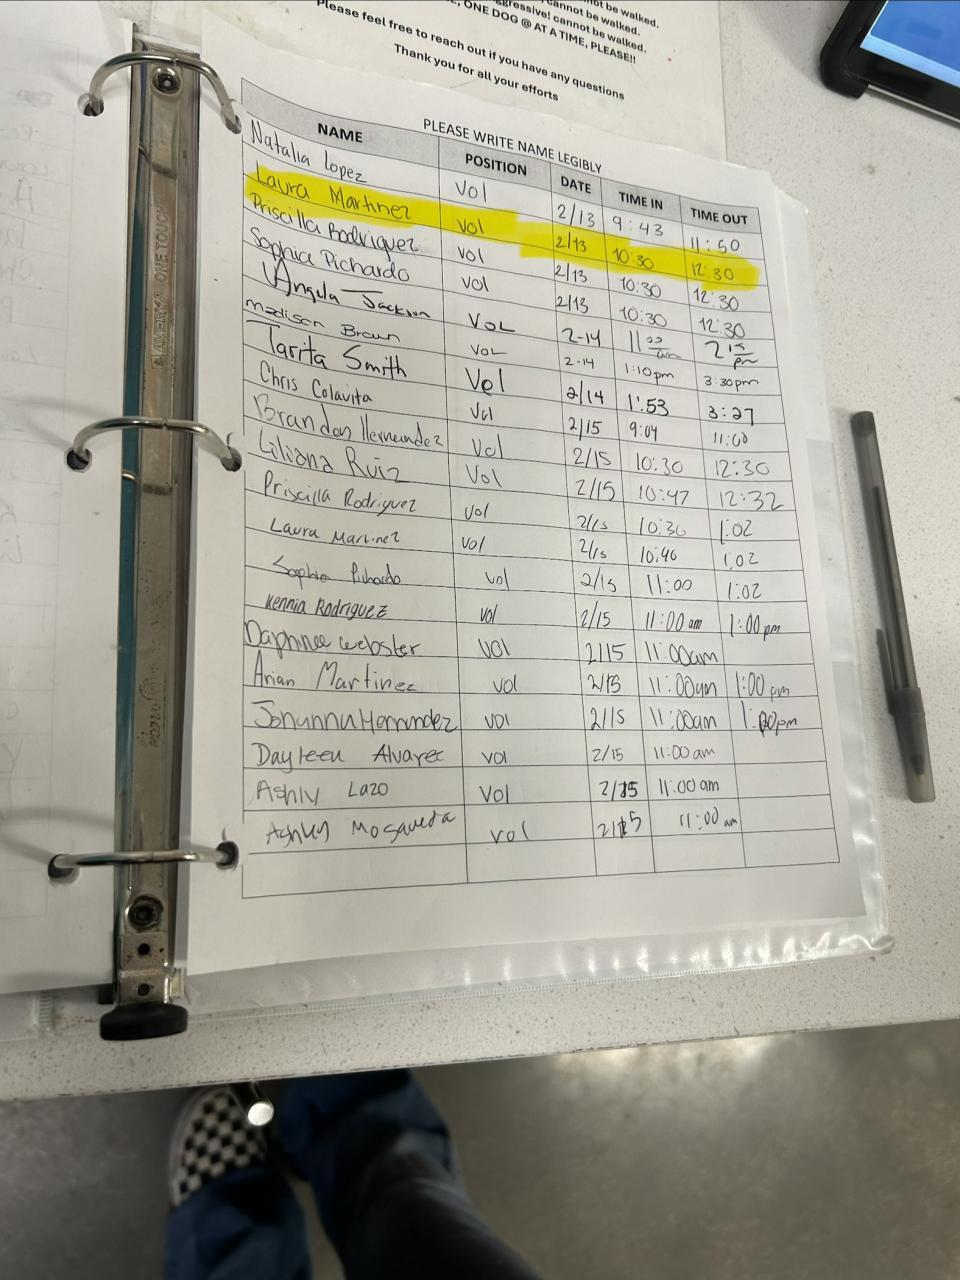 not be walked.
ggressive! cannot be walked.
cannot be walked.
ONE DOG @ AT A TIME, PLEASE!!
Please feel free to reach out if you have any questions
Thank you for all your efforts
PLEASE WRITE NAME LEGIBLY
NAME POSITION DATE TIME IN TIME OUT
Natalia Lopez Vol 2/13 9:43 11:50
Laura Martinez Vol 2/13 10:30 12:30
Priscilla Rodriguez Vol 2/13 10:30 12:30
Sophia Pichardo Vol 2/13 10:30 12:30
Angela Jackson VOL 2-14 11 00 am 2 15 pm
Madison Brown VOL 2-14 1:10pm 3:30pm
Tarita Smith Vol 2/14 1:53 3:27
Chris Colavita Vol 2/15 9:04 11:00
Brandon Hernandez Vol 2/15 10:30 12:30
Liliana Ruiz Vol 2/15 10:47 12:32
Priscilla Rodriguez Vol 2/15 10:30 1:02
Laura Martinez Vol 2/15 10:40 1:02
Sophia Pichardo Vol 2/15 11:00 1:02
Kennia Rodriguez Vol 2/15 11:00 am 1:00 pm
Daphnee Webster Vol 2/15 11:00am
Arian Martinez vol 2/15 11:00am 1:00 pm
Johanna Hernandez vol 2/15 11:00am pm
Dayleen Alvarez vol 2/15 11:00 am
Ashly Lazo Vol 2/15 11:00 am
Ashley Mosqueda vol 2/15 11:00 am
AVERY ONE TOUCH